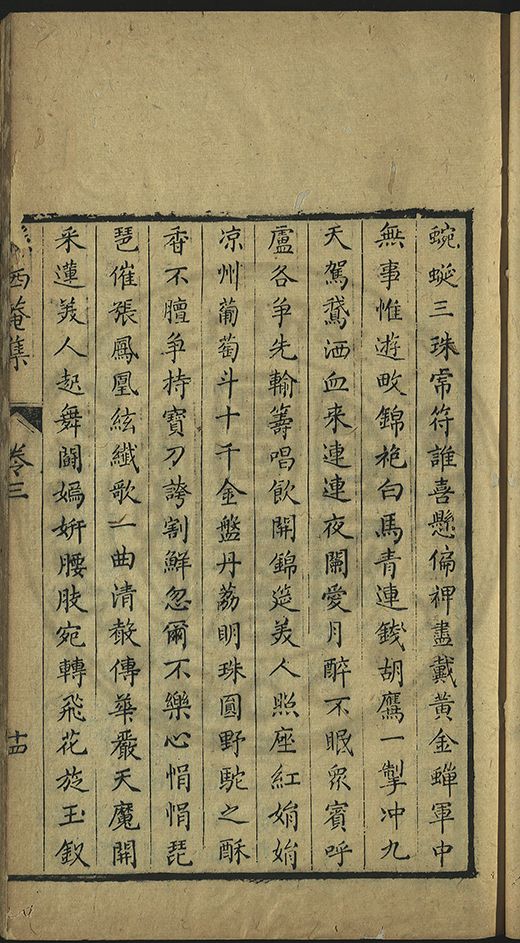 蜿蜒三珠常符誰喜懸偏裨盡戴黃金蟬軍中
無事惟遊畋錦袍白馬青連錢胡鷹一掣冲九
天駕鵞洒血來連連夜闌愛月醉不眠衆賓呼
盧各爭先輸籌唱飲開錦筵美人照座紅娟娟
凉州葡萄斗十千金盤丹荔明珠圓野駝之酥
香不膻爭持寶刀誇割鮮忽爾不樂心悁悁琵
琶催張鳳凰絃纖歌一曲清㪇傳華嚴天魔開
采蓮美人起舞鬬嫣姸腰肢宛轉飛花旋玉釵
西菴集
卷三
十四